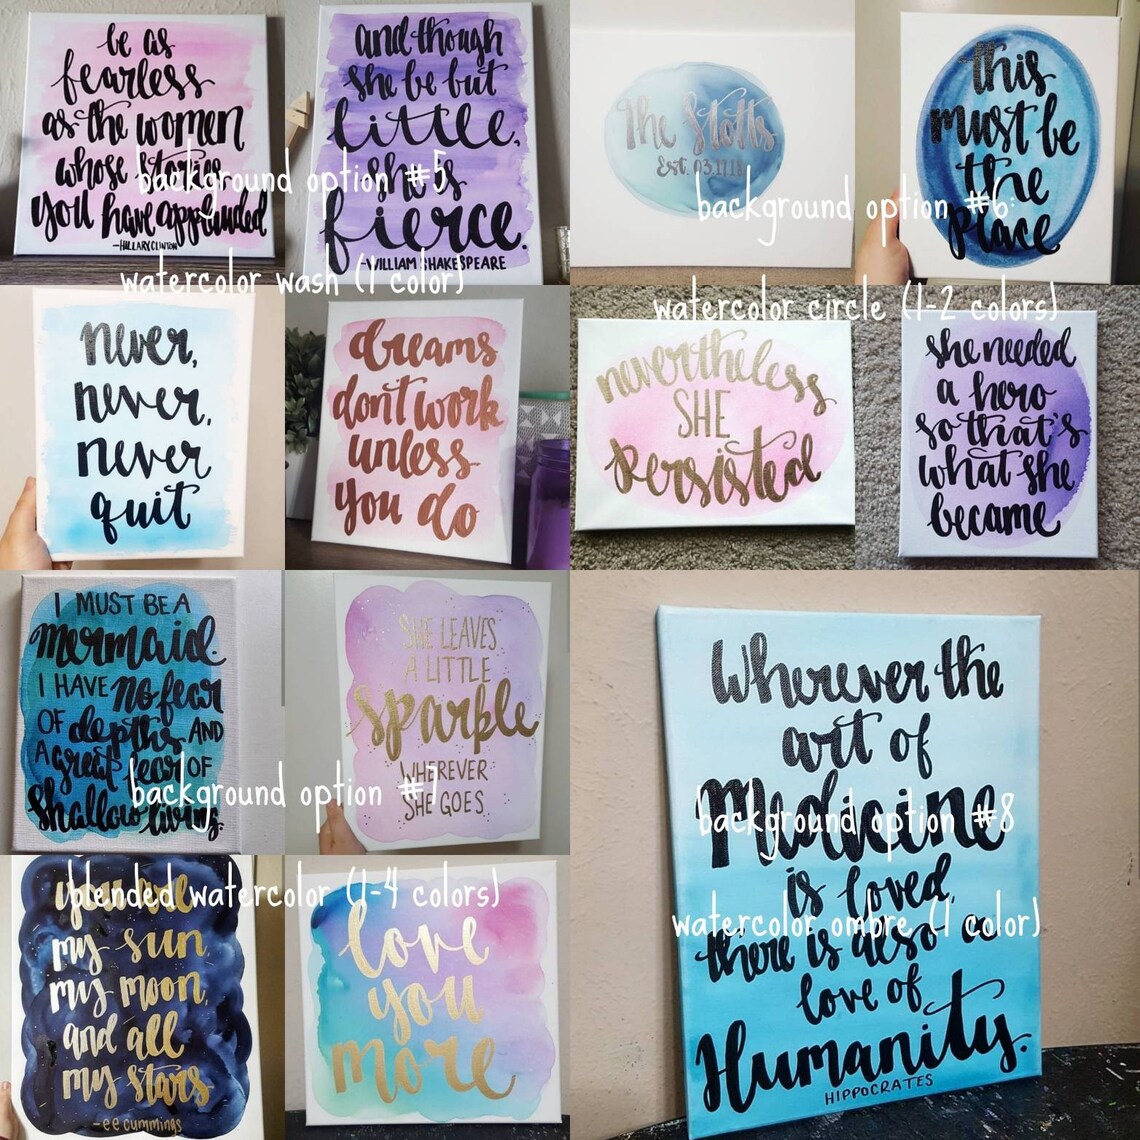 be as
fearless
as the women
whose stories
you have applauded
-HILLARY CLINTON
and though
she be but
little,
she is
fierce.
-WILLIAM SHAKESPEARE
background option #5
watercolor wash (1 color)
never,
never,
never
quit
dreams
don't work
unless
you do
The Stotts
Est. 03.17.18
this
must be
the
place
background option #6:
watercolor circle (1-2 colors)
nevertheless
SHE
persisted
she needed
a hero
so that's
what she
became
I MUST BE A
mermaid.
I HAVE no fear
OF depths AND
A great fear OF
shallow living.
SHE LEAVES
A LITTLE
sparkle
WHEREVER
SHE GOES
background option #7
blended watercolor (1-4 colors)
you are
my sun,
my moon,
and all
my stars
-ee cummings
love
you
more
Wherever the
art of
Medicine
is loved,
there is also a
love of
Humanity.
HIPPOCRATES
background option #8
watercolor ombre (1 color)